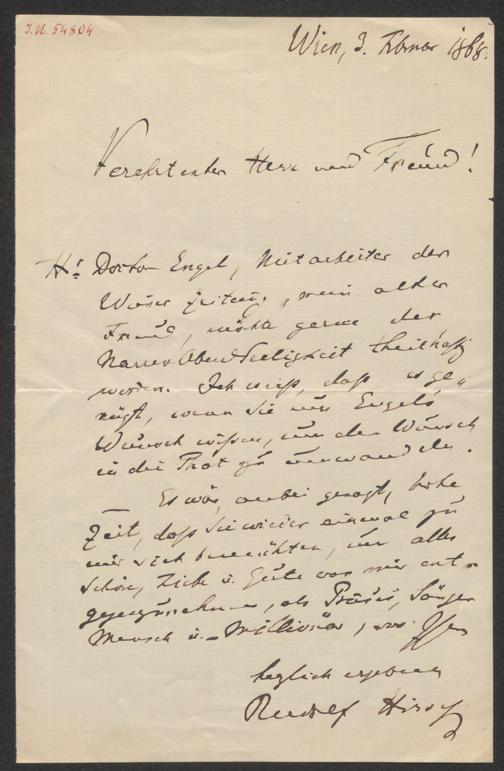 J.N. 54804
Wien, 3. Februar 1868.
Verehrtester Herr und Freund!
Hr Doctor Engel, Mitarbeiter der
Wiener Zeitung, mein alter
Freund, möchte gerne der
NarrenAbendSeeligkeit theilhaftig
werden. Ich weiß, daß es ge
nügt, wenn Sie um Engels
Wunsch wissen, um den Wunsch
in die That zu umwandeln.
Es wär, anbei gesagt, hohe
Zeit, daß Sie wieder einmal zu
mir sich bemühten, um alles
Schöne, Liebe u. Gute von mir ent-
gegenzunehmen, als Präses, Sänger
Mensch u. Millionär, von Ihrem
herzlich ergebenen
Rudolf Hirsch